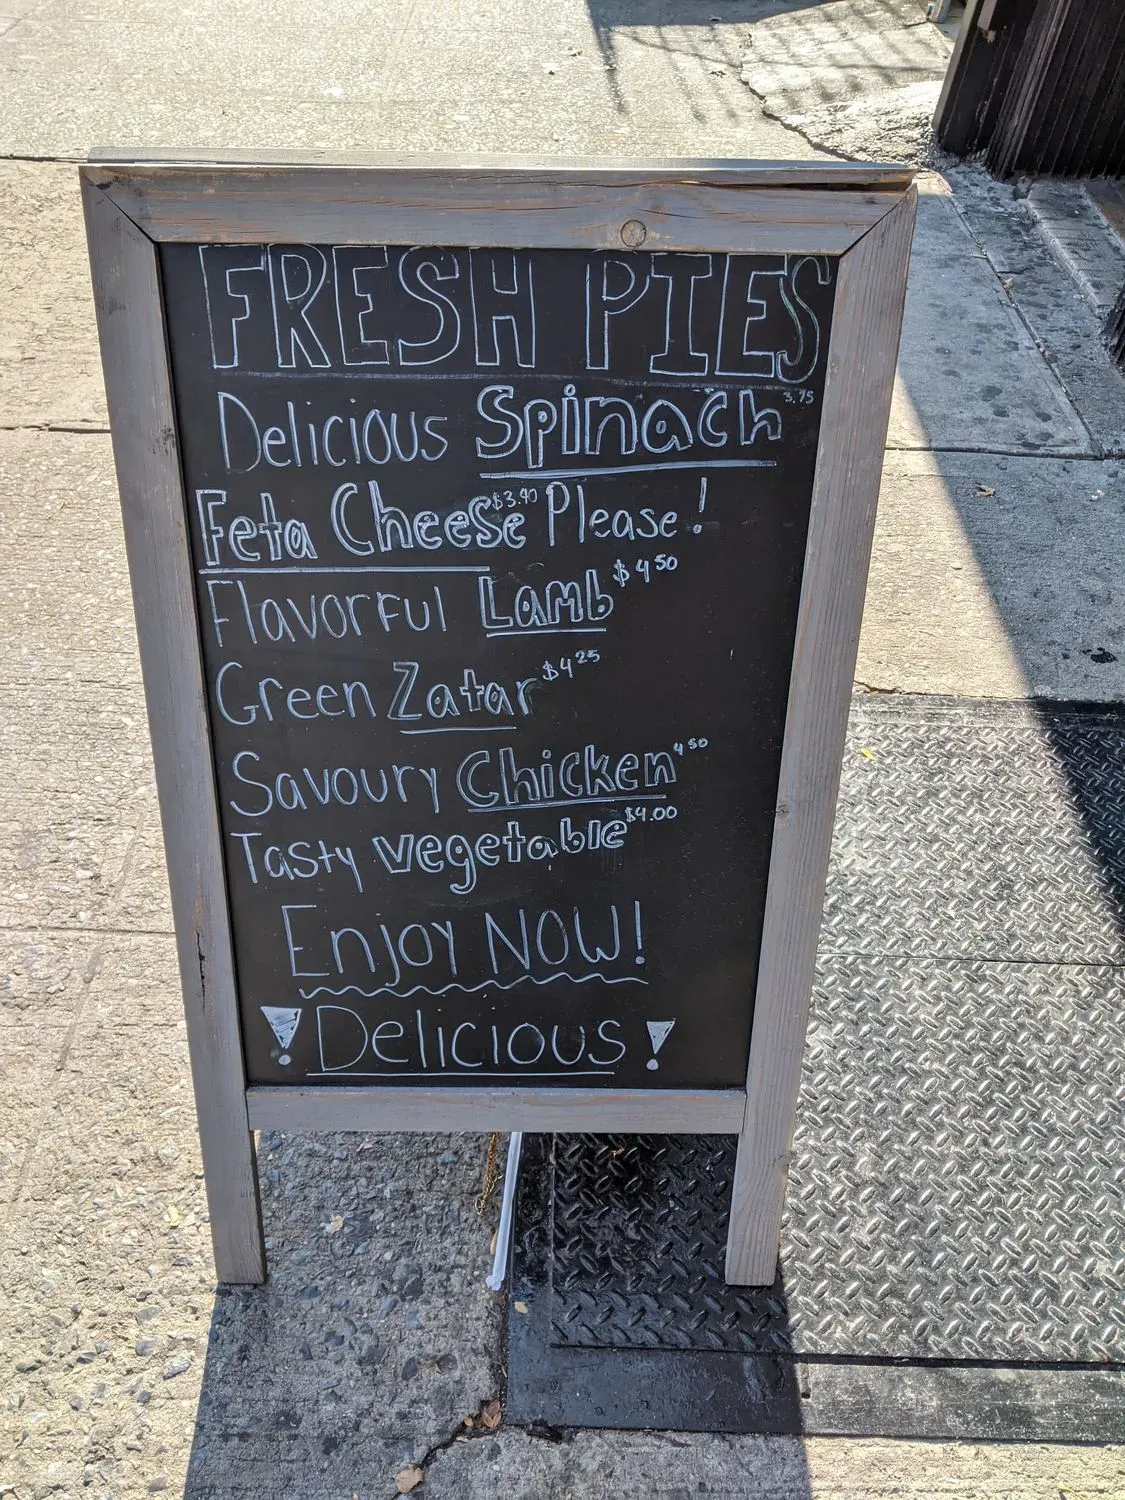 FRESH PIES
Delicious Spinach 3.75
Feta Cheese $3.90 Please!
Flavorful Lamb $4 50
Green Zatar $4 25
Savoury Chicken 4 50
Tasty vegetable $4.00
Enjoy NOW!
! Delicious !